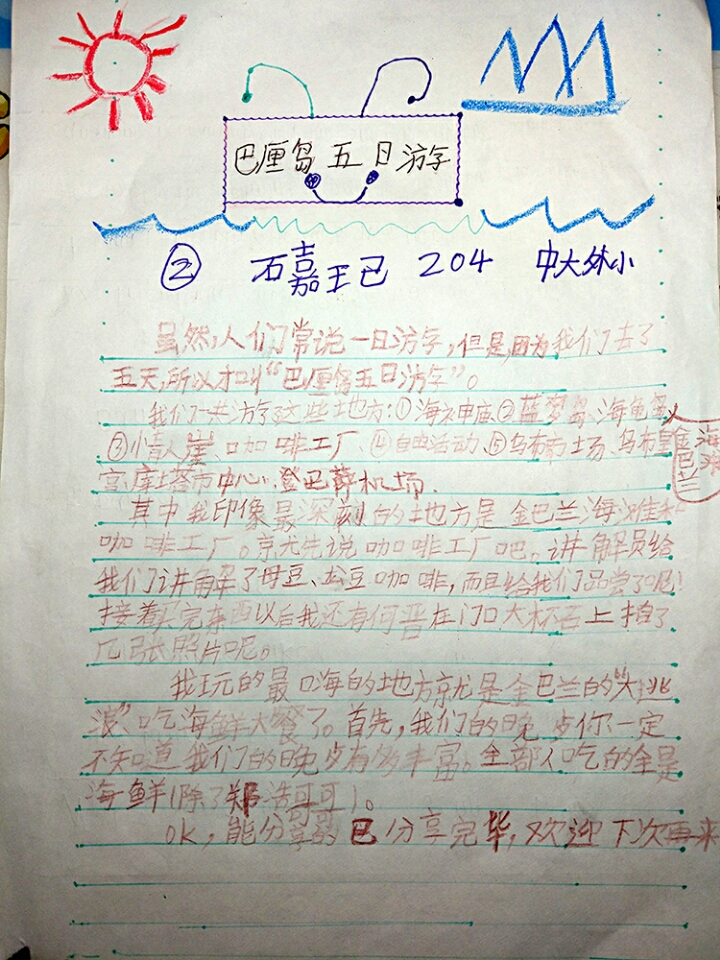 巴厘岛五日游字
② 石嘉王已 204 中大外小
虽然,人们常说一日游字,但是,因为我们去了
五天,所以才叫“巴厘岛五日游字”。
我们一共游了这些地方:①海神庙、②蓝梦岛、海龟岛、
③小情人崖、咖啡工厂、④自由活动、⑤乌布市场、乌布皇
金巴兰海滩
宫、库塔市中心、登巴萨机场.
其中我印像最深刻的地方是金巴兰海滩和
咖啡工厂。京尤先说咖啡工厂吧。讲解员给
我们讲解了母豆、公豆咖啡,而且给我们品尝了呢!
接着买完东西以后我还有何晋在门口大杯石上拍了
几张照片呢。
我玩的最嗨的地方就是金巴兰的“大挑
浪”吃海鲜大餐了。首先,我们的晚歺你一定
不知道我们的晚歺有多丰富。全部人吃的全是
海鲜(除了郑浩哥哥)。
ok,能分享的已分享完毕,欢迎下次再来